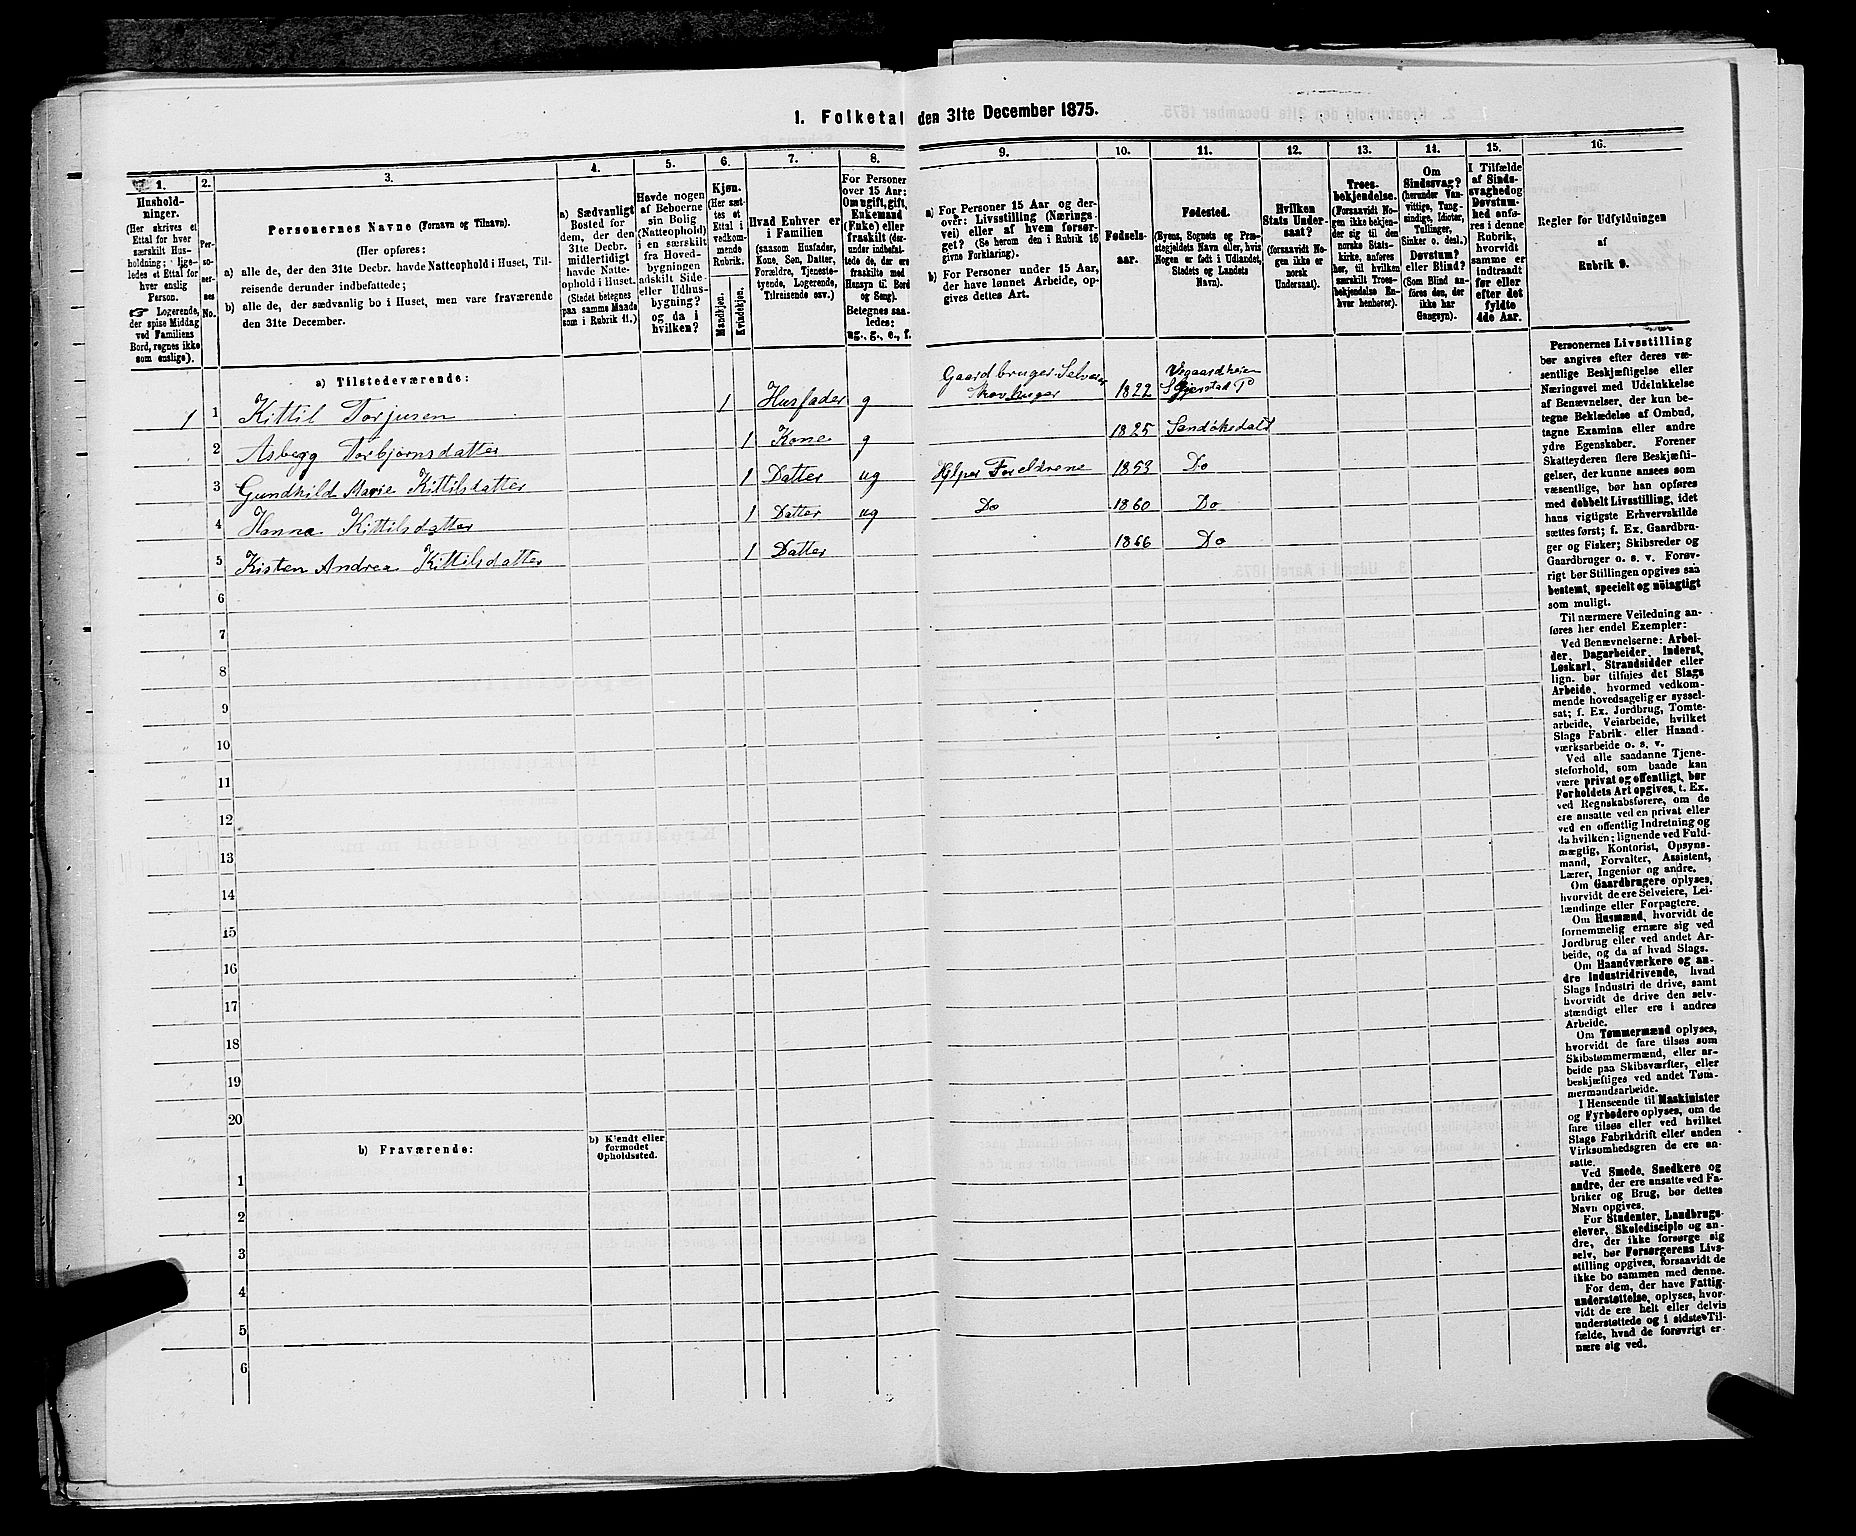 1. Folketal den 31te December 1875.
1.
Hushold-
ninger.
(Her skrives et
Ettal for hver
særskilt Hus-
holdning; lige-
ledes et Ettal for
hver enslig
Person.
☞ Logerende,
der spise Middag
ved Familiens
Bord, regnes ikke
som enslige).
2.
Per-
so-
ner-
nes
No.
3.
Personernes Navne (Fornavn og Tilnavn).
(Her opføres:
a) alle de, der den 31te Decbr. havde Natteophold i Huset, Til-
reisende derunder indbefattede;
b) alle de, der sædvanlig bo i Huset, men vare fraværende
den 31te December.
4.
a) Sædvanligt
Bosted for
dem, der den
31te Decbr.
midlertidigt
havde Natte-
ophold i Huset.
(Stedet betegnes
paa samme Maade
som i Rubrik 11.)
5.
Havde nogen
af Beboerne
sin Bolig
(Natteophold)
i en særskilt
fra Hoved-
bygningen
adskilt Side
eller Udhus-
bygning?
og da i
hvilken?
6.
Kjøn.
(Her sæt-
tes et
Ettal i
vedkom-
mende
Rubrik.
Mandkjøn.
Kvindekjøn.
7.
Hvad Enhver er
i Familien
(saasom Husfader,
Kone, Søn, Datter,
Forældre, Tjeneste-
tyende, Logerende,
Tilreisende osv.)
8.
For Personer
over 15 Aar:
Om ugift, gift,
Enkemand
(Enke) eller
fraskilt (der-
under indbefat-
tede de, der ere
fraskilte med
Hensyn til Bord
og Seng).
Betegnes saa-
ledes:
ug., g., e., f.
9.
a) For Personer 15 Aar og der-
over: Livsstilling (Nærings-
vei) eller af hvem forsør-
get? (Se herom den i Rubrik 16
givne Forklaring).
b) For Personer under 15 Aar,
der have lønnet Arbeide, op-
gives dettes Art.
10.
Fødsels-
aar.
11.
Fødested.
(Byens, Sognets og Præ-
stegjeldets Navn eller, hvis
Nogen er født i Udlandet,
Stedets og Landets
Navn).
12.
Hvilken
Stats Under-
saat?
(forsaavidt No-
gen ikke er
norsk
Undersaat).
13.
Troes-
bekjendelse.
(Forsaavidt No-
gen ikke bekjen-
der sig til den
norske Stats-
kirke, anføres
her, til hvilken
særskilt Troes-
bekjendelse En-
hver henhører).
14.
Om
Sindssvag?
(herunder Van-
vittige, Tung-
sindige, Idioter,
Tullinger,
Sinker o. desl.)
Døvstum?
eller Blind?
(Som Blind an-
føres den, der
ikke har
Gangsyn).
15.
I Tilfælde
af Sinds-
svaghed og
Døvstum-
hed anfø-
res i denne
Rubrik,
hvorvidt
samme er
indtraadt
før eller
efter det
fyldte
4de Aar.
16.
Regler for Udfyldningen
af
Rubrik 9.
a) Tilstedeværende:
1 1 Kittil Torjusen 1 Husfader g Gaardbruger Selveier Skovbruger 1822 Vegaardsheien S Gjerstad P
2 Asbegg Torbjørnsdatter 1 Kone g 1825 Sandøkedals
3 Gundhild Marie Kittilsdatter 1 Datter ug Hjelper Foreldrene 1853 Do
4 Hanne Kittilsdatter 1 Datter ug Do 1860 Do
5 Kisten Andrea Kittilsdatter 1 Datter 1866 Do
6
7
8
9
10
11
12
13
14
15
16
17
18
19
20
b) Fraværende:
b) Kjendt eller
formodet
Opholdssted.
1
2
3
4
5
6
Personernes Livsstilling
bør angives efter deres væ-
sentlige Beskjæftigelse eller
Næringsvei med Udelukkelse
af Benævnelser, der kun be-
tegne Beklædelse af Ombud,
tagne Examina eller andre
ydre Egenskaber. Forener
Skatteyderen flere Beskjæfti-
gelser, der kunne ansees som
væsentlige, bør han opføres
med dobbelt Livsstilling, idet
hans vigtigste Erhvervskilde
sættes først; f. Ex. Gaardbru-
ger og Fisker; Skibsreder og
Gaardbruger o. s. v. Forøv-
rigt bør Stillingen opgives saa
bestemt, specielt og nøiagtigt
som muligt.
Til nærmere Veiledning an-
føres her endel Exempler:
Ved Benævnelserne: Arbei-
der, Dagarbeider, Inderst,
Løskarl, Strandsidder eller
lign. bør tilføjes det Slags
Arbeide, hvormed vedkom-
mende hovedsagelig er syssel-
sat; f. Ex. Jordbrug, Tomte-
arbeide, Veiarbeide, hvilket
Slags Fabrik- eller Haand-
værksarbeide o. s. v.
Ved alle saadanne Tjene-
steforhold, som baade kan
være privat og offentligt, bør
Forholdets Art opgives, t. Ex.
ved Regnskabsførere, om de
ere ansatte ved en privat eller
ved en offentlig Indretning og
da hvilken; lignende ved Fuld-
mægtig, Kontorist, Opsyns-
mand, Forvalter, Assistent,
Lærer, Ingeniør og andre.
Om Gaardbrugere oplyses,
hvorvidt de ere Selveiere, Lei-
lændinge eller Forpagtere.
Om Husmænd, hvorvidt de
fornemmelig ernære sig ved
Jordbrug eller ved andet Ar-
beide, og da af hvad Slags.
Om Haandværkere og an-
dre Industridrivende, hvad
Slags Industri de drive, samt
hvorvidt de drive den selv-
stændigt eller ere i andres
Arbeide.
Om Tømmermænd oplyses,
hvorvidt de fare tilsøs som
Skibstømmermænd, eller ar-
beide paa Skibsværfter, eller
beskjæftiges ved andet Tøm-
mermandsarbeide.
I Henseende til Maskinister
og Fyrbødere oplyses, om de
fare tilsøs eller ved hvilket
Slags Fabrikdrift eller anden
Virksomhedsgren de ere an-
satte.
Ved Smede, Snedkere og
andre, der ere ansatte ved Fa-
briker og Brug, bør dettes
Navn opgives.
For Studenter, Landbrugs-
elever, Skoledisciple og an-
dre, der ikke forsørge sig
selv, bør Forsørgerens Livs-
stilling opgives, forsaavidt de
ikke bo sammen med denne.
For dem, der have Fattig-
understøttelse, oplyses, hvor-
vidt de ere helt eller delvis
understøttede og i sidste Til-
fælde, hvad de forøvrigt er-
nære sig ved.